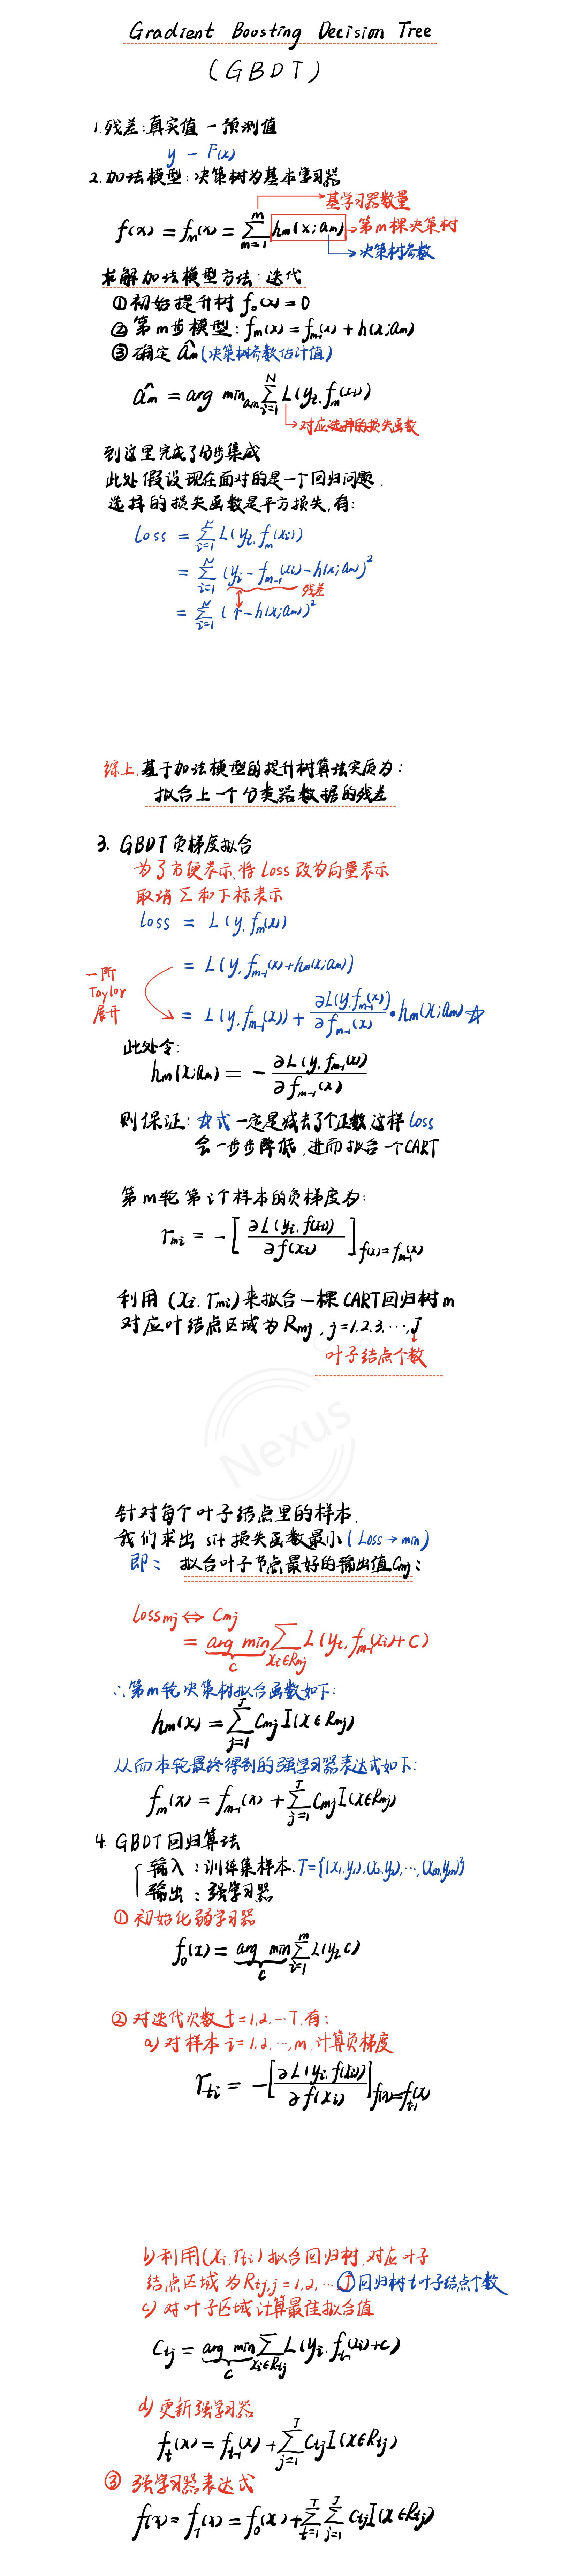 Gradient Boosting Decision Tree
(GBDT)
1.残差:真实值 - 预测值
y - F(x)
2.加法模型:决策树为基本学习器
→基学习器数量
f(x) = f_m(x) = Σ_{m=1}^{m} h_m(x;a_m) →第m棵决策树
→决策树参数
求解加法模型方法:迭代
①初始提升树 f_0(x)=0
②第m步模型: f_m(x)=f_{m-1}(x)+h(x;a_m)
③确定 â_m (决策树参数估计值)
â_m = arg min_{a_m} Σ_{i=1}^{N} L(y_i, f_m(x_i))
→对应选择的损失函数
到这里完成了分步集成
此处假设现在面对的是一个回归问题.
选择的损失函数是平方损失,有:
loss = Σ_{i=1}^{N} L(y_i, f_m(x_i))
= Σ_{i=1}^{N} (y_i - f_{m-1}(x_i) - h(x;a_m))^2
残差
= Σ_{i=1}^{N} (r - h(x;a_m))^2
综上,基于加法模型的提升树算法实质为:
拟合上一个分类器数据的残差
3. GBDT负梯度拟合
为了方便表示,将Loss改为向量表示
取消Σ和下标表示
loss = L(y, f_m(x))
= L(y, f_{m-1}(x)+h_m(x;a_m))
一阶
Taylor
展开
= L(y, f_{m-1}(x)) + ∂L(y, f_{m-1}(x))/∂f_{m-1}(x) • h_m(x;a_m) ☆
此处令:
h_m(x;a_m) = - ∂L(y, f_{m-1}(x))/∂f_{m-1}(x)
则保证: ☆式一定是减去了个正数,这样loss
会一步步降低,进而拟合一个CART
第m轮第i个样本的负梯度为:
r_{mi} = -[∂L(y_i, f(x_i))/∂f(x_i)]_{f(x)=f_{m-1}(x)}
利用 (x_i, r_{mi})来拟合一棵CART回归树m
对应叶结点区域为R_{mj}, j=1,2,3,…,J
叶子结点个数
Nexus
针对每个叶子结点里的样本,
我们求出 s.t 损失函数最小(Loss→min)
即: 拟合叶子节点最好的输出值C_{mj}:
Loss_{mj} ⇔ C_{mj}
= arg min_c Σ_{x_i∈R_{mj}} L(y_i, f_{m-1}(x_i)+C)
∴第m轮决策树拟合函数如下:
h_m(x) = Σ_{j=1}^{J} C_{mj} I(x∈R_{mj})
从而本轮最终得到的强学习器表达式如下:
f_m(x) = f_{m-1}(x) + Σ_{j=1}^{J} C_{mj} I(x∈R_{mj})
4. GBDT回归算法
输入:训练集样本:T={(x_1,y_1),(x_2,y_2),…,(x_m,y_m)}
输出:强学习器
①初始化弱学习器
f_0(x) = arg min_c Σ_{i=1}^{m} L(y_i, c)
②对迭代次数 t=1,2,…T,有:
a)对样本i=1,2,…,m,计算负梯度
r_{ti} = -[∂L(y_i, f(x_i))/∂f(x_i)]_{f(x)=f_{t-1}(x)}
b)利用(x_i, r_{ti})拟合回归树,对应叶子
结点区域为R_{tj}, j=1,2,…,J 回归树t叶子结点个数
c)对叶子区域计算最佳拟合值
C_{tj} = arg min_c Σ_{x_i∈R_{tj}} L(y_i, f_{t-1}(x_i)+c)
d)更新强学习器
f_t(x) = f_{t-1}(x) + Σ_{j=1}^{J} C_{tj} I(x∈R_{tj})
③强学习器表达式
f(x) = f_T(x) = f_0(x) + Σ_{t=1}^{T} Σ_{j=1}^{J} C_{tj} I(x∈R_{tj})